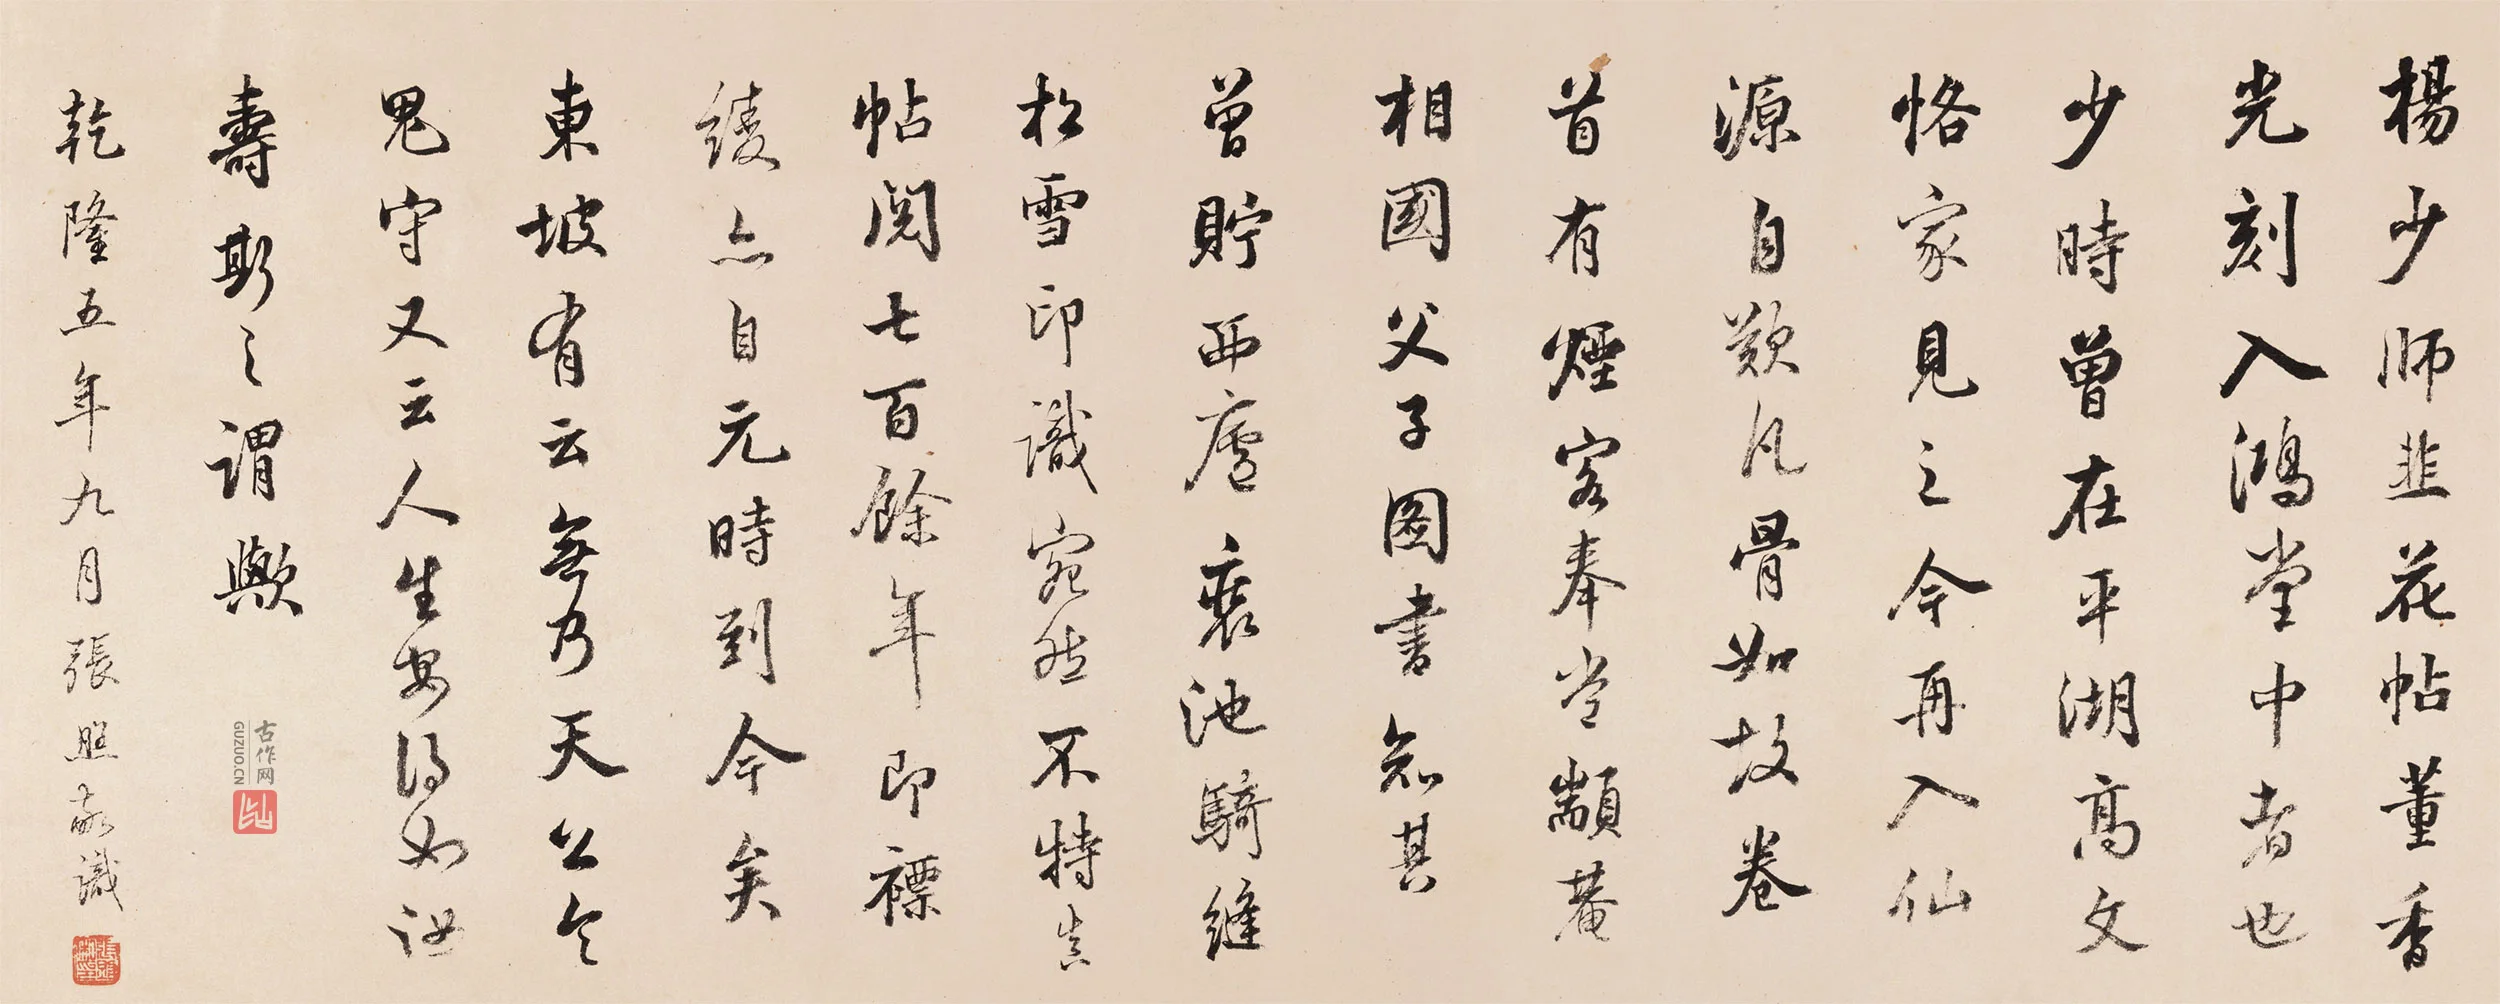 楊少師韭花帖董香
光刻入鴻堂中者也
少時曾在平湖高文
恪家見之今再入仙
源自歎凡骨如故卷
首有煙客奉常顓菴
相國父子圖書知其
曾貯西廬裹池騎縫
松雪印識宛然不特真
帖閱七百餘年即褾
綾亦自元時到今矣
東坡有云無乃天公令
鬼守又云人生安得如汝
壽斯之謂歟
乾隆五年九月張照敬識
古作网
GUZUO.CN